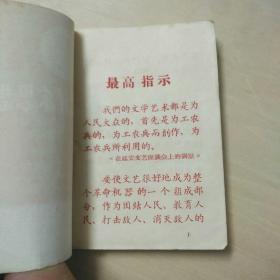 最高指示
我們的文学艺术都是为
人民大众的，首先是为工农
兵的，为工农兵而創作，为
工农兵所利用的。
《在延安文艺座談会上的講話》
要使文艺很好地成为整
个革命机器的一个組成部
分，作为团結人民、教育人
民、打击敌人、消灭敌人的
1